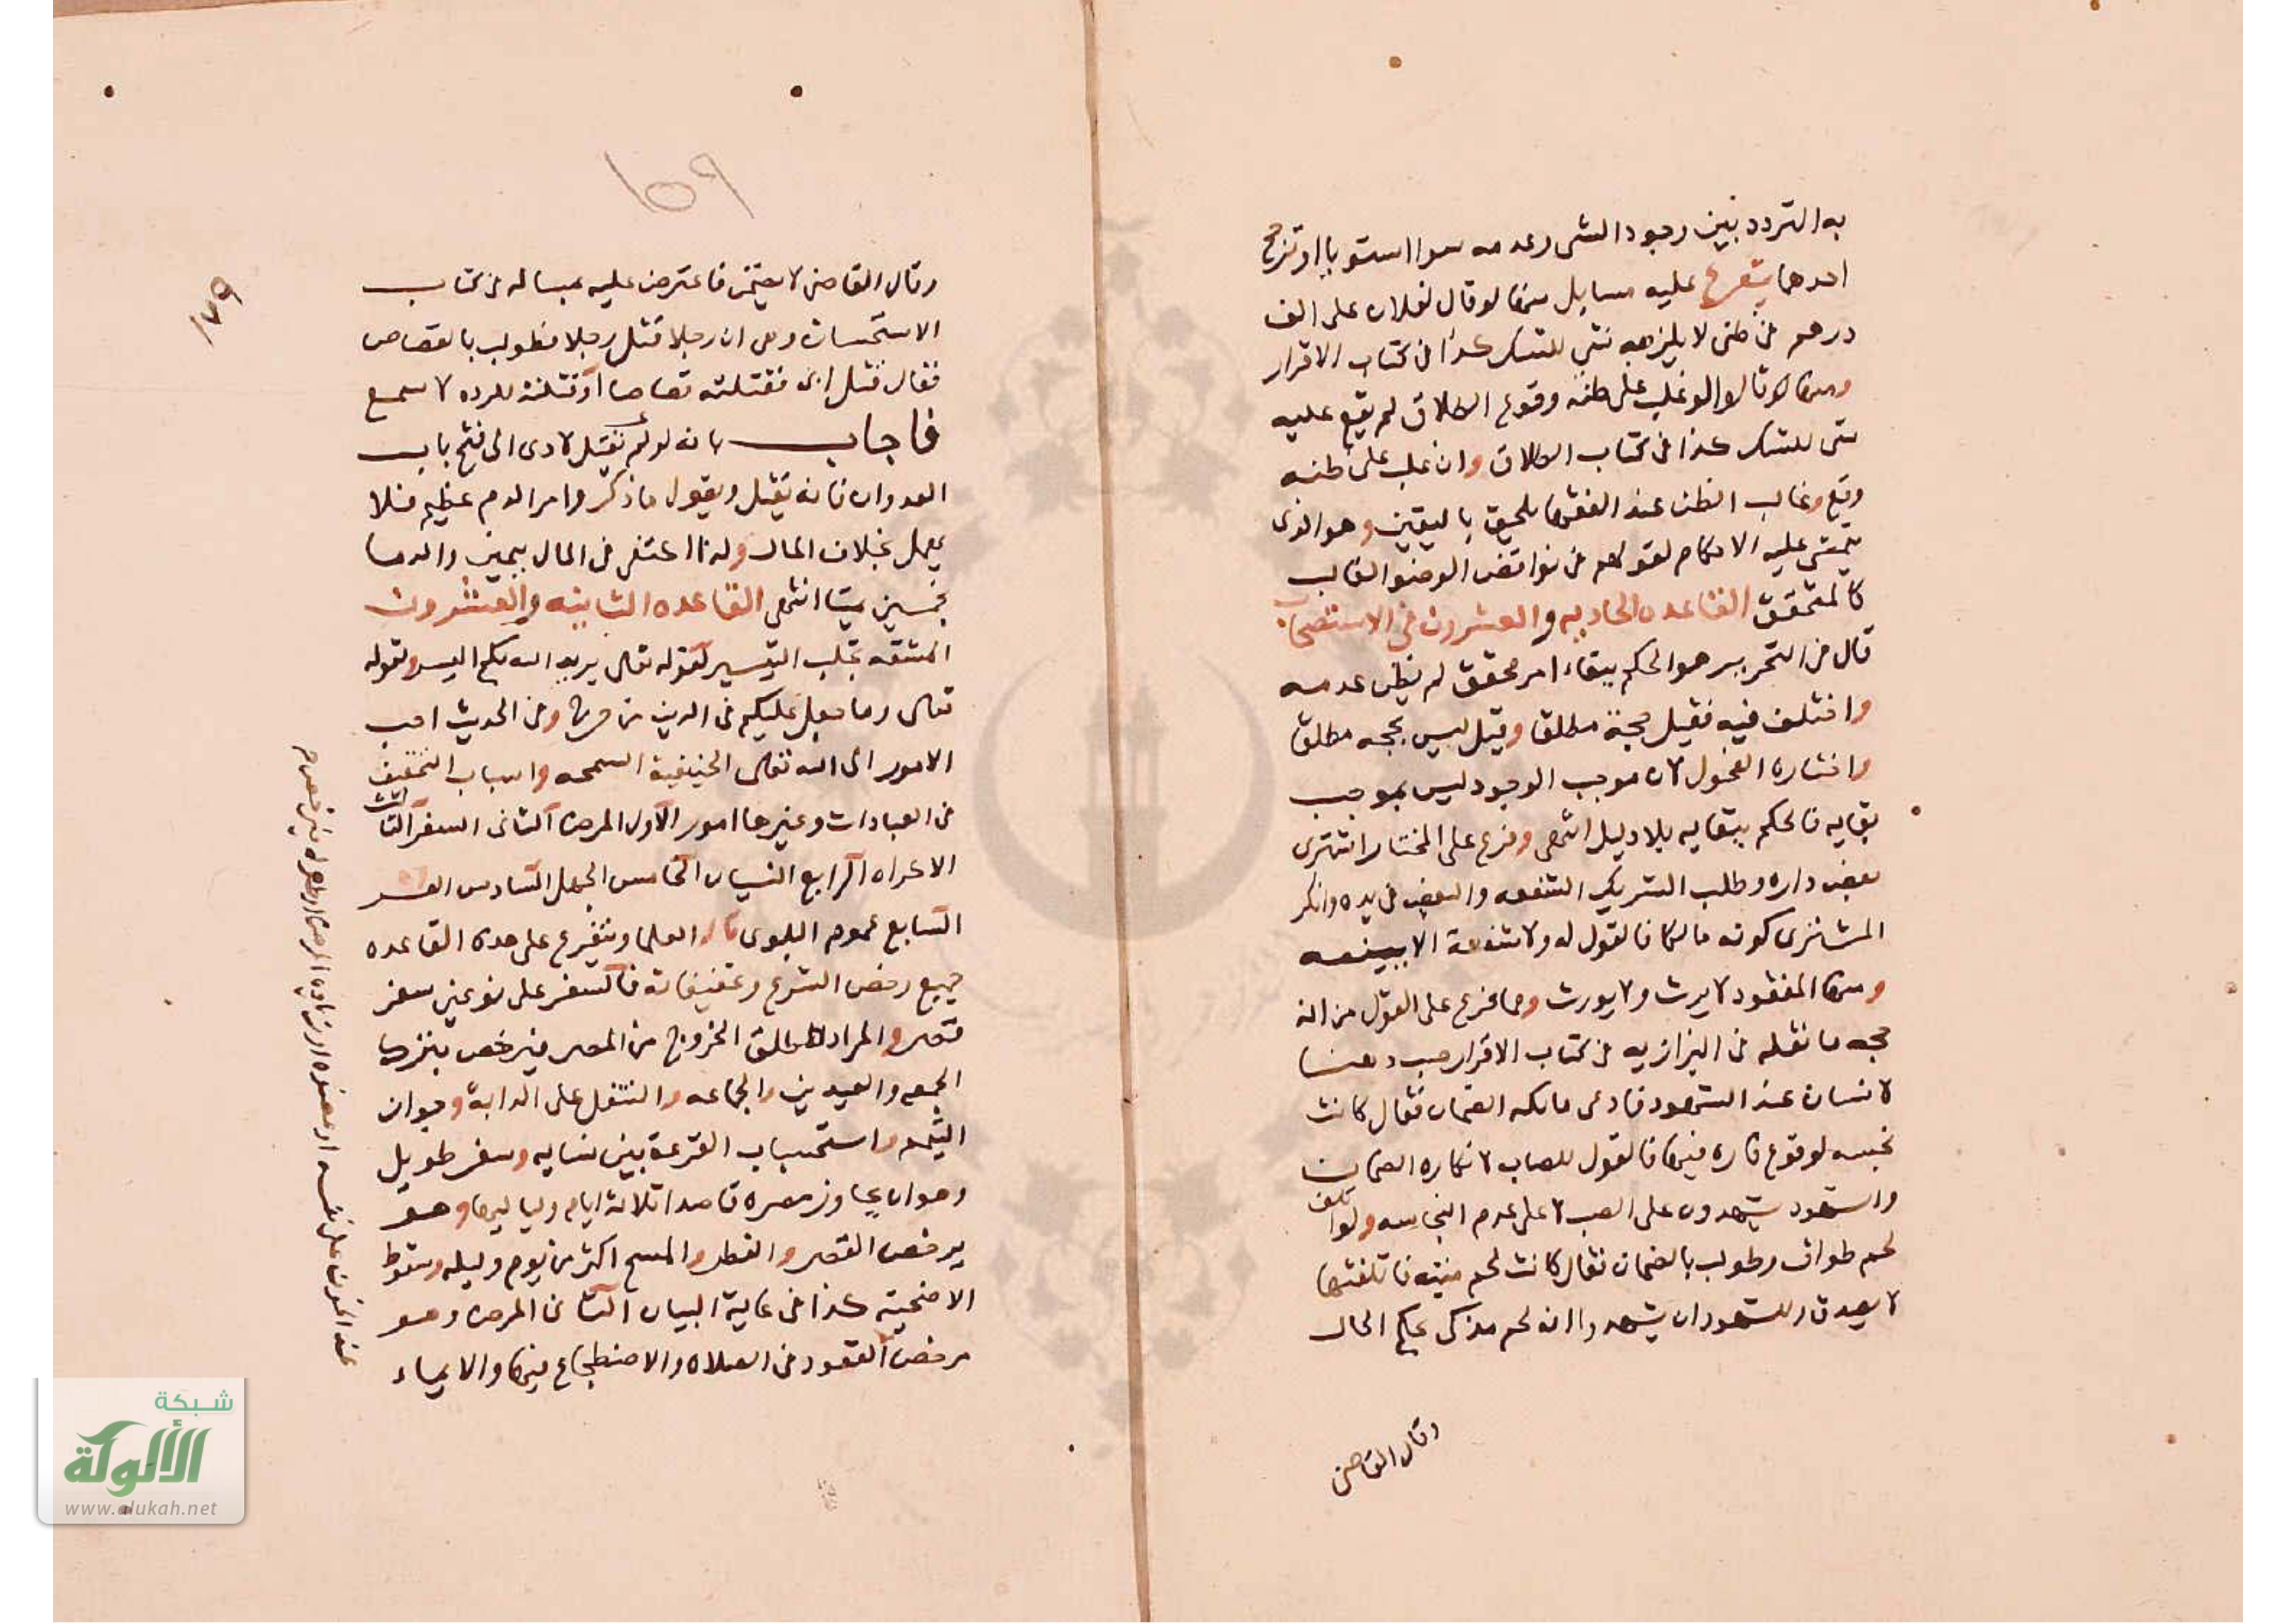 به التردد بين وجود الشي وعدمه سوا استويا او ترجح
احدهما يتفرع عليه مسايل منها لو قال لفلان على الف
درهم في ظني لا يلزمه شي للشك كذا في كتاب الاقرار
ومنها لو قالوا لو غلب على ظنه وقوع الطلاق لم يقع عليه
شي للشك كذا في كتاب الطلاق وان غلب على ظنه
وقع وغالب الظن عند الفقها ملحق باليقين وهو الذي
تبتني عليه الاحكام لقولهم في نواقض الوضو الغالب
كالمتحقق القاعده الحاديه والعشرون في الاستصحاب
قال في التحرير هو الحكم ببقاء امر محقق لم يظن عدمه
واختلف فيه فقيل حجة مطلقا وقيل ليس بحجه مطلقا
واختاره الفحول لان موجب الوجود ليس بموجب
بقايه فالحكم ببقايه بلا دليل انتهى وفرع على المختار اشترى
بعض داره وطلب الشريك الشفعه والبعض في يده وانكر
المشترى كونه مالكا فالقول له ولا شفعة الا ببينه
ومنها المفقود لا يرث ولا يورث ومما فرع على القول من انه
حجه ما نقله في البزازيه في كتاب الاقرار صب دهنا
لانسان عند الشهود فادعى مالكه الضمان فقال كانت
نجسه لوقوع فاره فيها فالقول للصاب لانكاره الضمان
والشهود يشهدون على الصب لا على عدم النجاسه ولو اتلف
لحم طواف وطولب بالضمان فقال كانت لحم ميته فاتلفتها
لا يصدق وللشهود ان يشهدوا انه لحم مذكى بحكم الحال
وقال القاضي
١٥٩
١٧٩
وقال القاضي لا يضمن فاعترض عليه بمساله في كتاب
الاستحسان وهي ان رجلا قتل رجلا فطولب بالقصاص
فقال قتل ابي فقتلته قصاصا او قتلته للرده لا يسمع
فاجاب بانه لو لم نقبل لادى الى فتح باب
العدوان فانه يقتل ويقول ما ذكر وامر الدم عظيم فلا
يهمل بخلاف المال ولهذا اكتفى في المال بيمين والدما
بخمسين يمينا انتهى القاعده الثانيه والعشرون
المشقه تجلب التيسير لقوله تعالى يريد الله بكم اليسر ولقوله
تعالى وما جعل عليكم في الدين من حرج وفي الحديث احب
الامور الى الله تعالى الحنيفية السمحه واسباب التخفيف
في العبادات وغيرها امور الاول المرض الثاني السفر الثالث
الاكراه الرابع النسيان الخامس الجهل السادس العسر
السابع عموم البلوى قال العلما ويتفرع على هذه القاعده
جميع رخص الشرع وتخفيفاته فالسفر على نوعين سفر
قصر والمراد المطلق الخروج من المصر فيرخص بتركه
الجمعه والعيدين والجماعه والتنفل على الدابة وجواز
التيمم واستحباب القرعة بين نسايه وسفر طويل
وهو ان يجاوز مصره قاصدا ثلاثة ايام ولياليها وهو
يرخص القصر والفطر والمسح اكثر من يوم وليله وسقوط
الاضحيه كذا في غاية البيان الثاني المرض وهو
مرخص القعود في الصلاة والاضطجاع فيها والايماء
عند الخوف على نفسه او عضوه او زيادة المرض او بطئه فيرخص م
شبكة
الألوكة
www.alukah.net